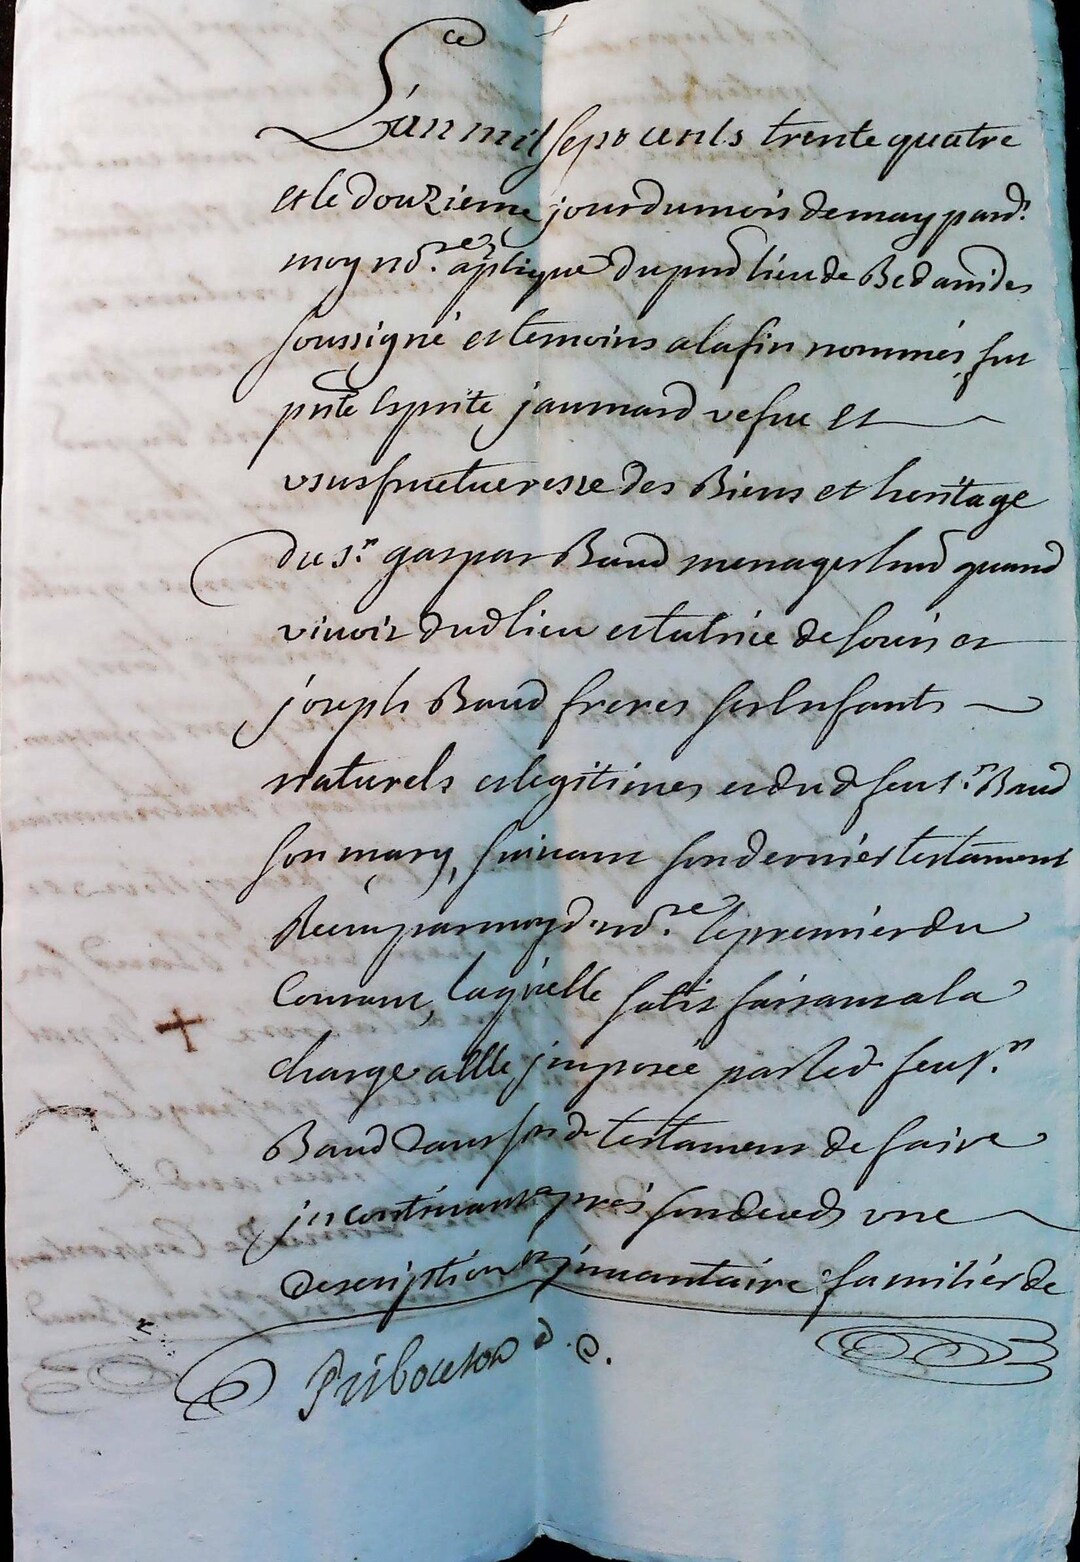 L'an mil sept cents trente quatre
et le douzieme jour du mois de may pard.t
moy no.re aplique du prnt lieu de Bedarrides
soussigné et temoins a la fin nommés, fut
pnte Esprite jaumard vefue et
vsusfructueresse des Biens et heritage
du s.r gaspar Baud menager lors quand
viuoit dud lieu et tutrice de Louis et
joseph Baud freres ses Enfants
naturels et legitimes et dud feu s.r Baud
son mary, suiuant son dernier testament
Receu par moyd. no.re le premier du
Courant, laquelle satisfaisant a la
charge a Elle jmposée par led feu s.r
Baud dans sond testament de faire
jncontinant apres son deceds vne
description et jnuantaire familier de